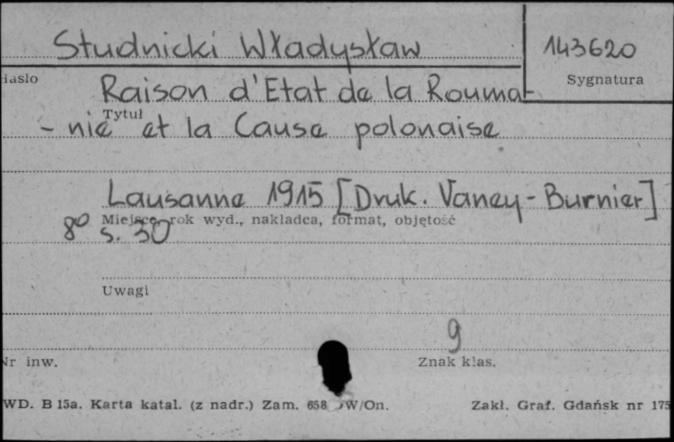 Studnicki Władysław
143620
Hasło
Sygnatura
Raison d'Etat de la Rouma-
Tytuł
- nie et la Cause polonaise
Lausanne 1915 [Druk. Vaney-Burnier]
Miejsce, rok wyd., nakładca, format, objętość
8° s. 30
Uwagi
9
Nr inw.
Znak klas.
WD. B 15a. Karta katal. (z nadr.) Zam. 658 W/On.
Zakł. Graf. Gdańsk nr 175